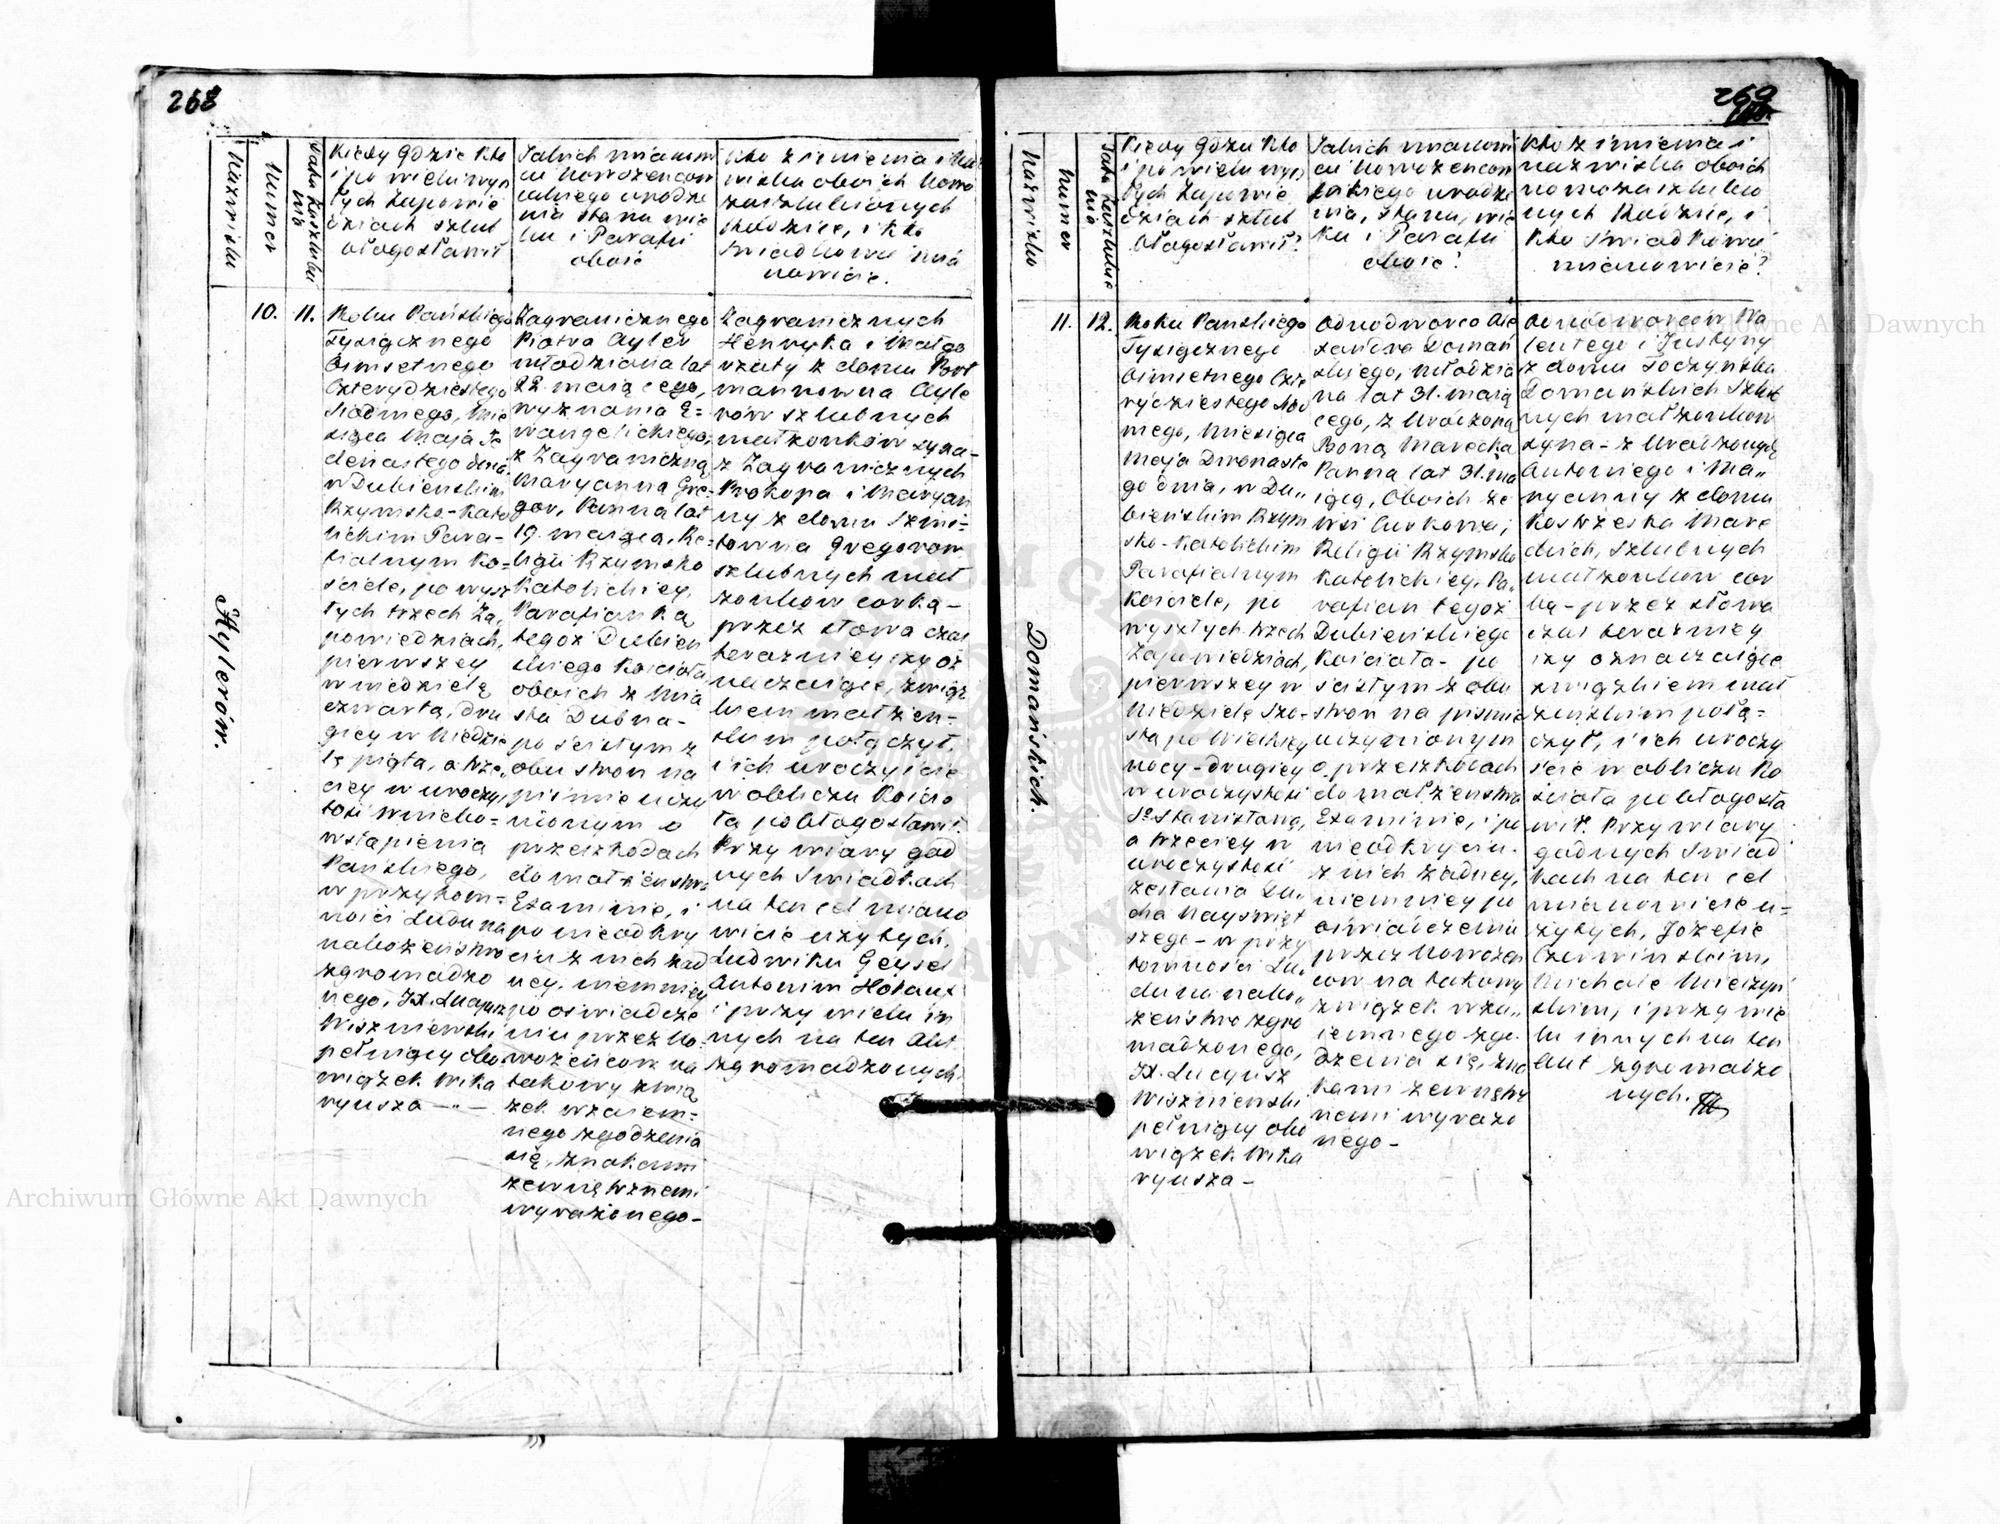 268
Nazwisko
Numer
Data zaszłu
nia
Kiedy gdzie kto
i po wielu wysz
łych zapowie
dziach szlub
błogosławił
Jakich mianowi
cie nowożencow
jakiego urodze
nia stana wie
ku i Parafii
oboie
Kto z imienia i Naz
wiska oboich nowo
zaszlubionych
Rodzice, i kto
świadkowie mia
nowicie.
10.
11.
Hylerów.
Roku Pańskiego
Tysiącznego
Ośmsetnego
Czterydziestego
Siódmego, Mie
siąca Maja Je
denastego dnia,
w Dubieńskim
Rzymsko-Kato
lickim Para-
fialnym Ko=
ściele, po wysz
łych trzech Za
powiedziach,
pierwszey
w niedzielę
czwartą, dru
giey w Niedzie
lę piątą, a trze,,
ciey w uroczy,
tości Wniebo=
wstąpienia
Pańskiego,
w przytom=
ności Ludu na
nabożeństwo
zgromadzo
nego, JX. Lucyusz
Wiszniewski
pełniący obo
wiązek Wika
ryusza —.—
Zagranicznego
Piotra Ayler
młodziana lat
22. maiącego,
wyznania E=
wangelickiego,
z Zagraniczną
Maryanną Gre=
gor, Panną lat
19. maiącą, Re=
ligii Rzymsko
Katolickiey,
Parafianką
tegoż Dubień
skiego Kościoła,
oboich z Mia
sta Dubna-
po ścisłym z
obu stron na
piśmie uczy
nionym o
przeszkodach
do małżeństwa
Examinie, i
po nieodkry
ciu z nich żad
ney, niemniey
po oswiadcze
niu przez No=
wożencow na
takowy zwią
zek wzaiem=
nego zgodzenia
się, znakami
zewnętrznemi
wyrażonego-
Zagranicznych
Henryka i Małgo
rzaty z domu Port
mannowna Ayle
rów szlubnych
małżonków syna-
z Zagranicznych
Prokopa i Maryan
ny z domu Szmi=
towna Gregorow
szlubnych mał
żonkow corką-
przez słowa czas
teraznieyszy oz
naczaiące, związ
kiem małżeń=
skim połączył,
i ich uroczyście
w obliczu Kościo
ła pobłogosławił.
Przy wiary god
nych Swiadkach
na ten cel miano
wicie użytych,
Ludwiku Geysel
Antonim Hotaux
i przy wielu in
nych na ten Akt
zgromadzonych.
269
Nazwisko
Numer
Data zaszłu
nia
Kiedy gdzie kto
i po wielu wysz
łych Zapowie
dziach szlub
błogosławił?
Jakich mianowi
cie Nowożencow
jakiego urodze
nia, stana, wie
ku i Parafii
oboie?
Kto z imienia i
nazwiska oboich
nowozaszlubio
nych Rodzice, i
kto świadkowie
mianowicie?
11.
12.
Domańskich.
Roku Pańskiego
Tysiącznego
Ośmsetnego Czte
rydziestego Siód
mego, Miesiąca
Maja Dwonaste
go dnia, w Du,,
bieńskim Rzym
sko-Katolickim
Parafialnym
Kościele, po
wyszłych trzech
Zapowiedziach,
pierwszey w
Niedzielę Szó-
stą po Wielkiey
nocy-drugiey
w uroczystości
Sº Stanisława,
a trzeciey w
uroczystości
Zesłania Du,
cha Nayswięt
szego- w przy
tomności Lu,
du na nabo,,
żeństwo zgro
madzonego,
JX. Lucyusz
Wiszniewski
pełniący obo
wiązek Wika
ryusza-
Odnodworca Ale
xandra Domań
skiego, młodzia
na lat 31. maią
cego, z Urodzoną
Boną Marecką
Panną lat 31. ma
iącą, Oboich ze
wsi Curkowa,
Religii Rzymsko
Katolickiey, Pa,
rafian tegoż
Dubieńskiego
Kościoła- po
ścisłym z obu
stron na piśmie
uczynionym
o przeszkodach
do małżeństwa
Examinie, i po
nieodkryciu
z nich żadney,
niemniey po
oświadczeniu
przez Nowożen
cow na takowy
związek wza,,
iemnego zgo-
dzenia się, zna
kami zewnętrz
nemi wyrażo
nego-
Odnodworcow Wa
lentego i Justyny
z domu Toczyńska
Domańskich Szlub
nych małżonkow
syna- z Urodzonych
Antoniego i Ma,,
ryanny z domu
Kostrzeska Mare
ckich, szlubnych
małżonkow cor
ką- przez słowa
czas teraźniey
szy oznaczaiące
związkiem mał
żeńskim połą=
czył, i ich uroczy
ście w obliczu Ko
ścioła pobłogosła
wił. Przy wiary
godnych Swiad
kach na ten cel
mianowicie u=
żytych, Józefie
Czerwińskim,
Michale Mieczyń
skim, i przy wie
lu innych na ten
akt zgromadzo
nych.
Archiwum Główne Akt Dawnych
Archiwum Główne Akt Dawnych